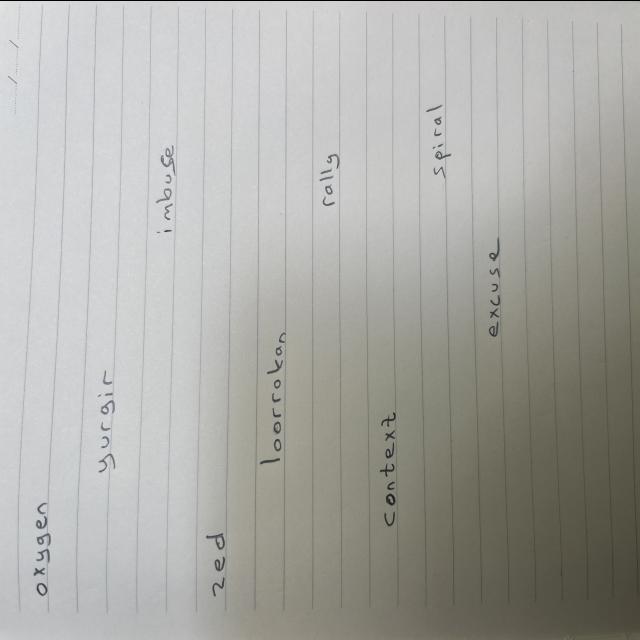 oxygen
yurgir
imbuse
zed
loorrokan
rally
context
spiral
excuse